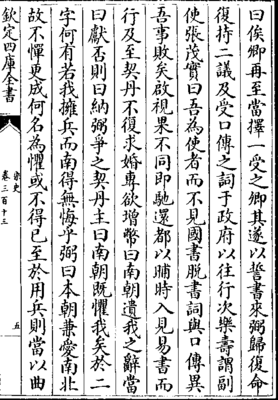 曰俟卿再至當擇一受之卿其遂以誓書來弼歸復命
復持二議及受口傳之詞于政府以往行次樂壽謂副
使張茂實曰吾為使者而不見國書脫書詞與口傳異
吾事敗矣啟視果不同即馳還都以晡時入見易書而
行及至契丹不復求婚專欲增幣曰南朝遺我之辭當
曰獻否則曰納弼爭之契丹主曰南朝既懼我矣於二
字何有若我擁兵而南得無悔乎弼曰本朝兼愛南北
故不憚更成何名為懼或不得已至於用兵則當以曲
欽定四庫全書
宋史
卷三百十三
五